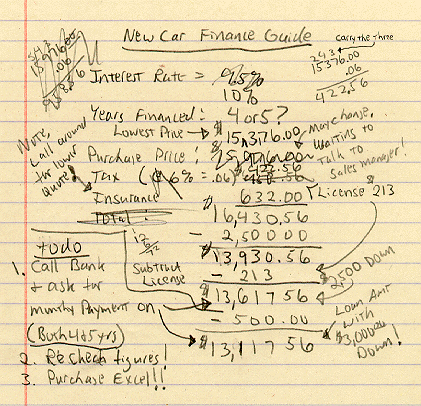 New Car Finance Guide
Carry the three
243
15376.00
.06
422.56
543
15976.00
.06
958.56
Interest Rate = 9.5%
10%
Years Financed: 4 or 5?
Lowest Price → $15,376.00
May change,
Waiting to
Talk to
Sales manager!
NOTE,
Call around
for lower
Quote!
Purchase Price: $15,976.00
Tax (6% = .06) 422.56
Insurance 632.00
License 213
Total: $16,430.56
- 2,500.00
$13,930.56
Subtract
License
- 213
2,500 Down
$13,617 56
- 500.00
Loan Amt
with
$3,000.00
Down!
$13,117 56
todo
1. Call Bank
& ask for
monthly Payment on
(Both 4&5 yrs)
2. Recheck figures!
3. Purchase Excel!!